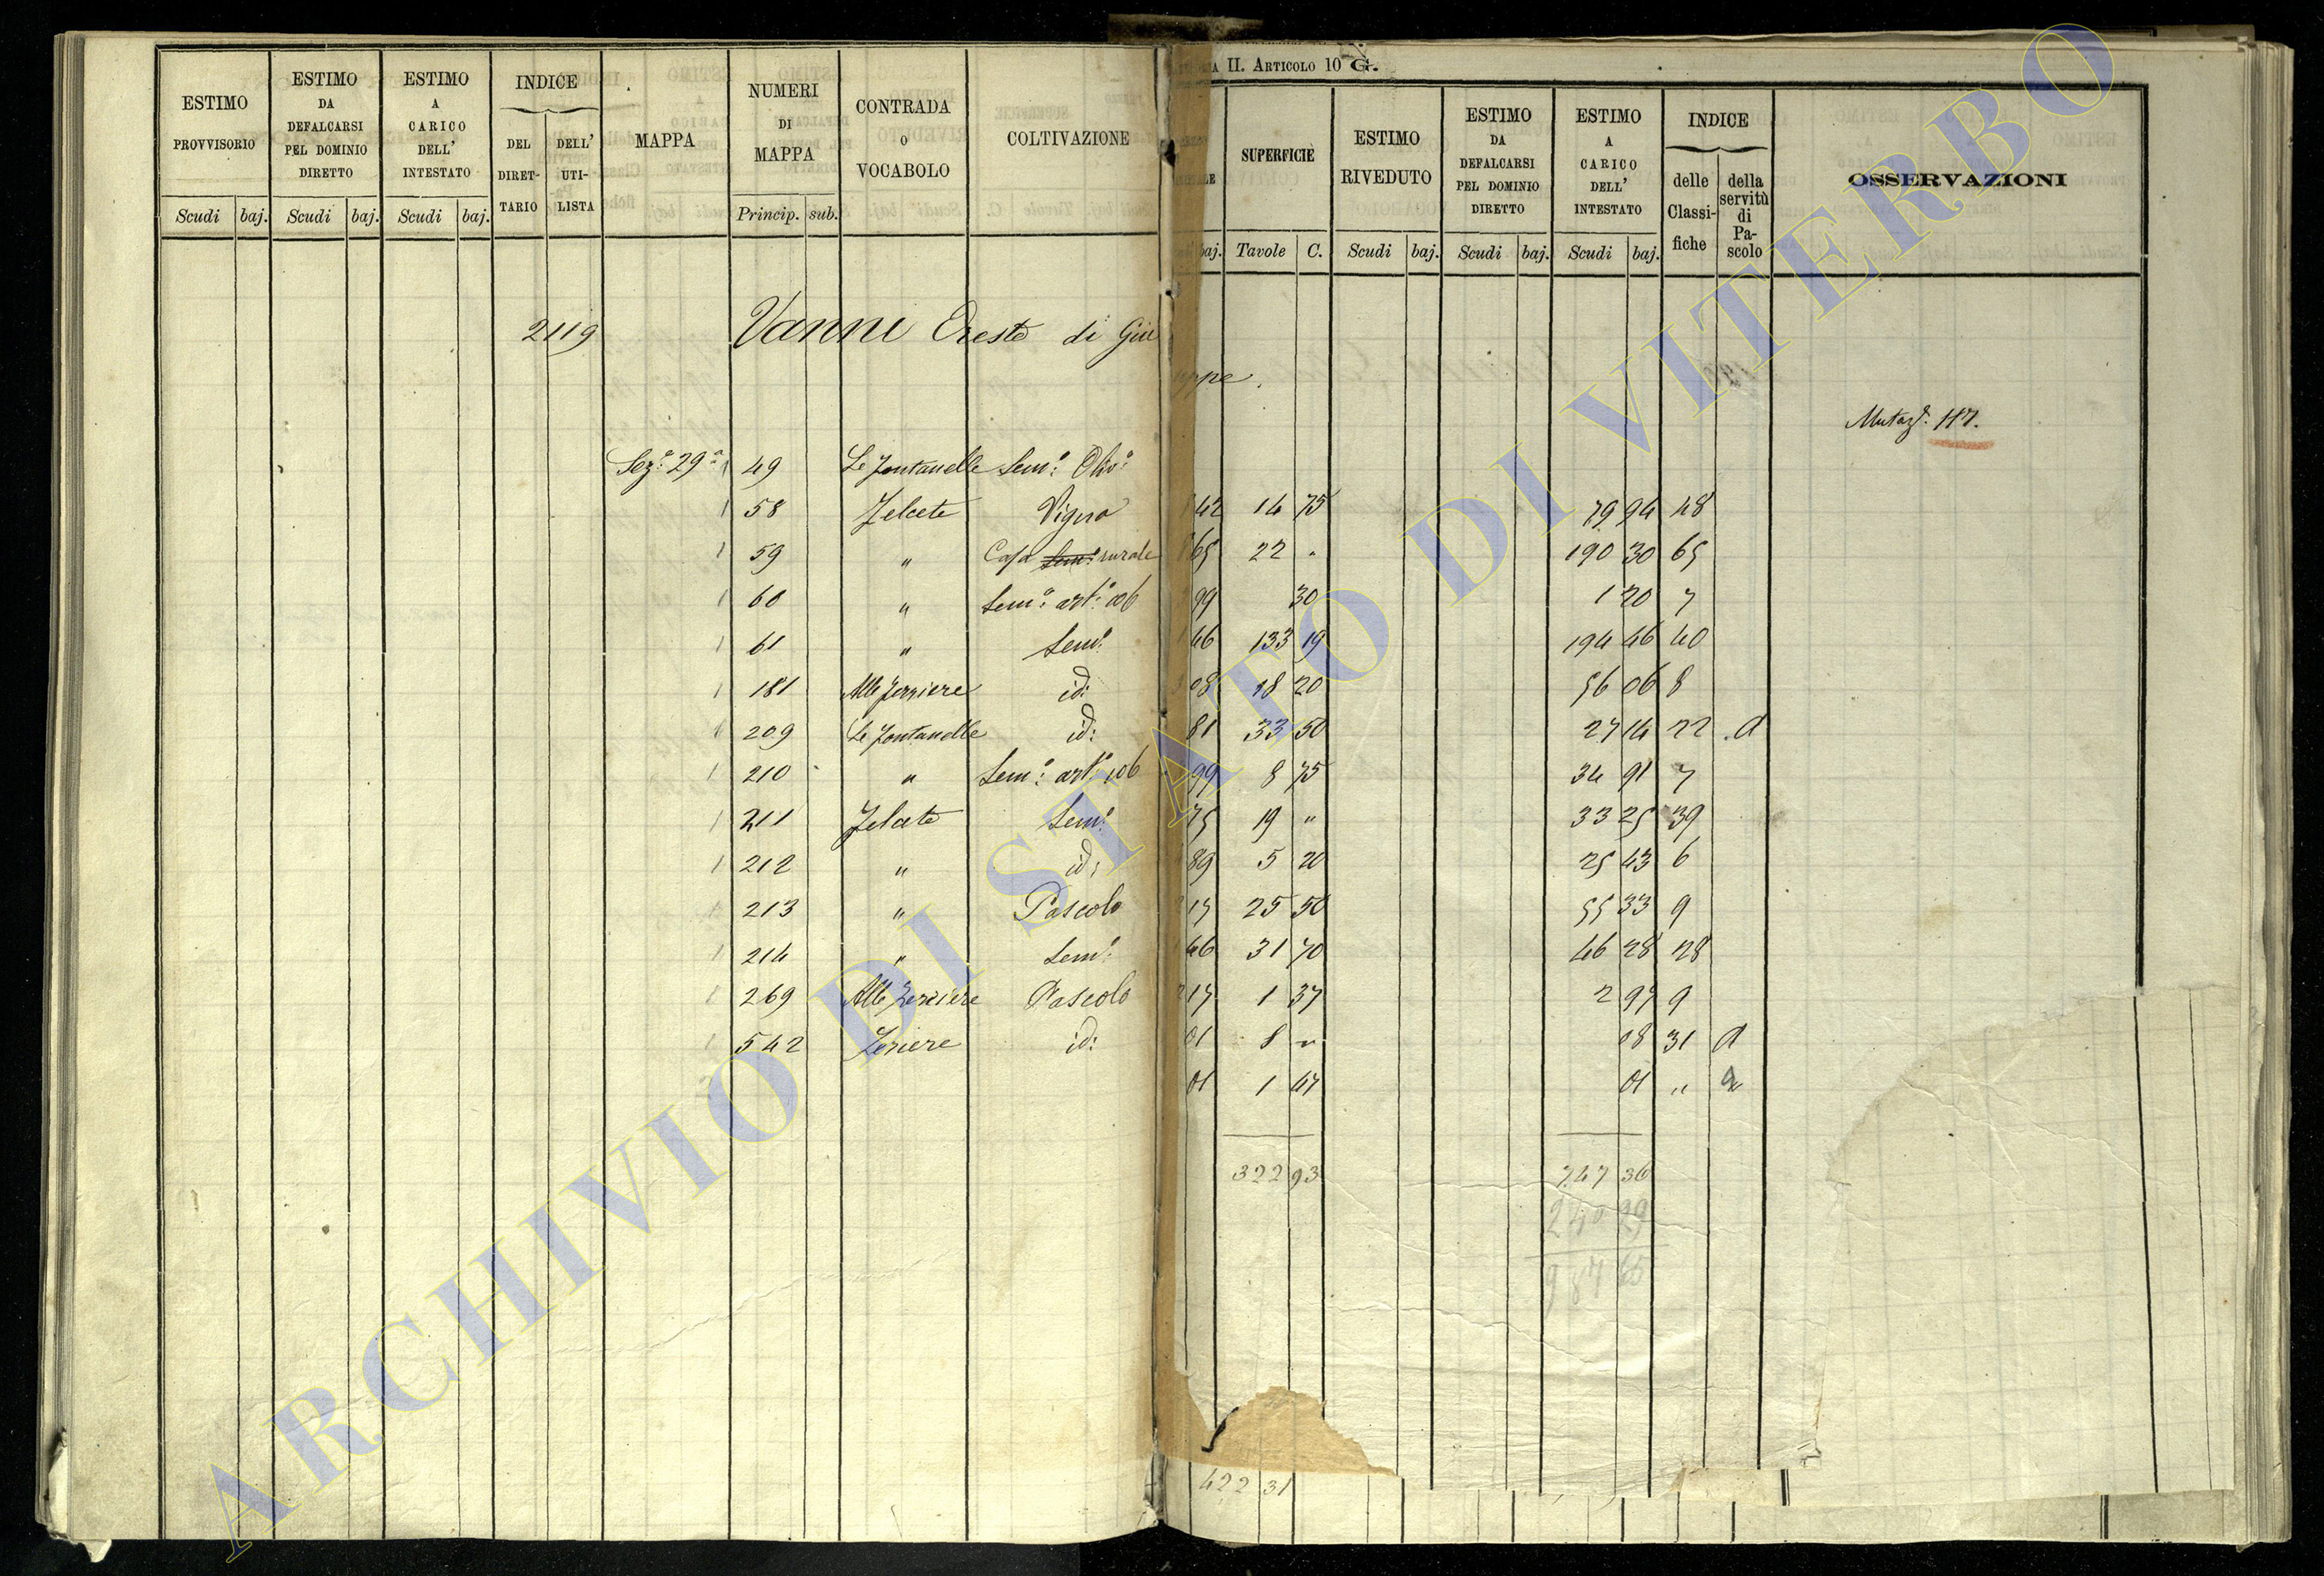 II. ARTICOLO 10 G.
ESTIMO PROVVISORIO
ESTIMO DA DEFALCARSI PEL DOMINIO DIRETTO
ESTIMO A CARICO DELL' INTESTATO
INDICE
DEL DIRET-TARIO
DELL' UTI-LISTA
MAPPA
NUMERI DI MAPPA
CONTRADA O VOCABOLO
COLTIVAZIONE
SUPERFICIE
ESTIMO RIVEDUTO
ESTIMO DA DEFALCARSI PEL DOMINIO DIRETTO
ESTIMO A CARICO DELL' INTESTATO
INDICE
delle Classi-fiche
della servitù di Pa-scolo
OSSERVAZIONI
Scudi baj. Scudi baj. Scudi baj. Princip. sub.
baj. Tavole C. Scudi baj. Scudi baj. Scudi baj.
2119 Vanni Oreste di Giu
ppe.
117.
Sezᵉ 29ᵃ 49 Le Fontanelle Semᵒ: Olivᵒ:
58 Felcete Vigna 42 14 75 79 94 48
59 " Casa rurale 65 22 " 190 30 65
60 " Semᵒ: artᵒ: 106 99 30 1 20 7
61 " Semᵒ: 46 133 19 194 46 40
181 id: 08 18 20 56 06 8
209 Le Fontanelle id: 81 33 50 27 14 22 . d
210 " Semᵒ: artᵒ: 106 99 8 75 34 91 7
211 Felcete Semᵒ: 75 19 " 33 25 39
212 " id: 89 5 20 25 43 6
213 " Pascolo 17 25 50 55 33 9
214 " Semᵒ: 46 31 70 46 28 28
269 Pascolo 17 1 37 2 97 9
542 id: 01 8 " 08 31 d
01 1 47 01 "
322 93 747 36
240 29
987 65
422 31
ARCHIVIO DI STATO DI VITERBO